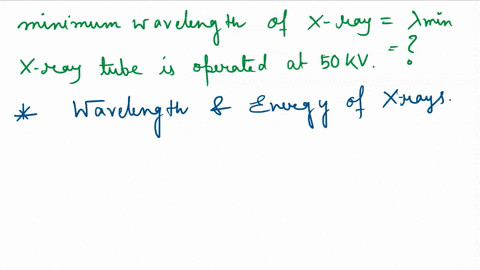 minimum wavelength of X-ray = λmin
X-ray tube is operated at 50 KV. = ?
* Wavelength & Energy of X-rays.